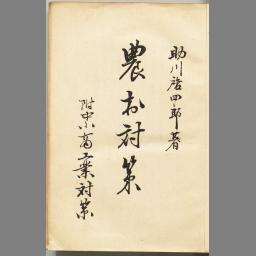 助川啓四郎著
農村対策
附中小商工業対策